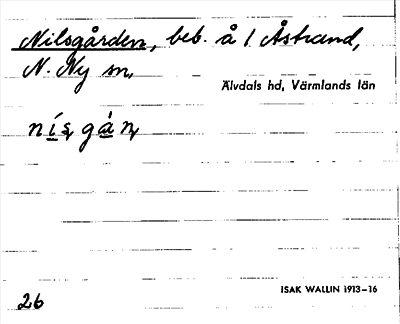 Nilsgården, beb. å 1 Åstrand,
N. Ny sn,
Älvdals hd, Värmlands län
ISAK WALLIN 1913–16
26